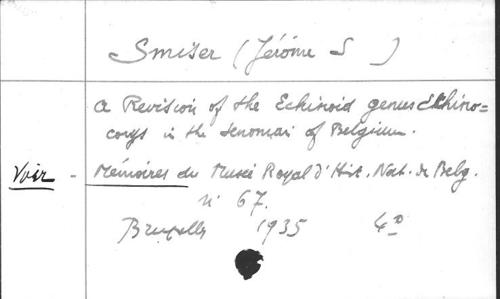 Smiser (Jérôme S )
A Revision of the Echinoid genus Echino=
corys in the Senonian of Belgium.
Voir - Mémoires du Musée Royal d'Hist. Nat. de Belg.
n° 67.
Bruxelles 1935 4°